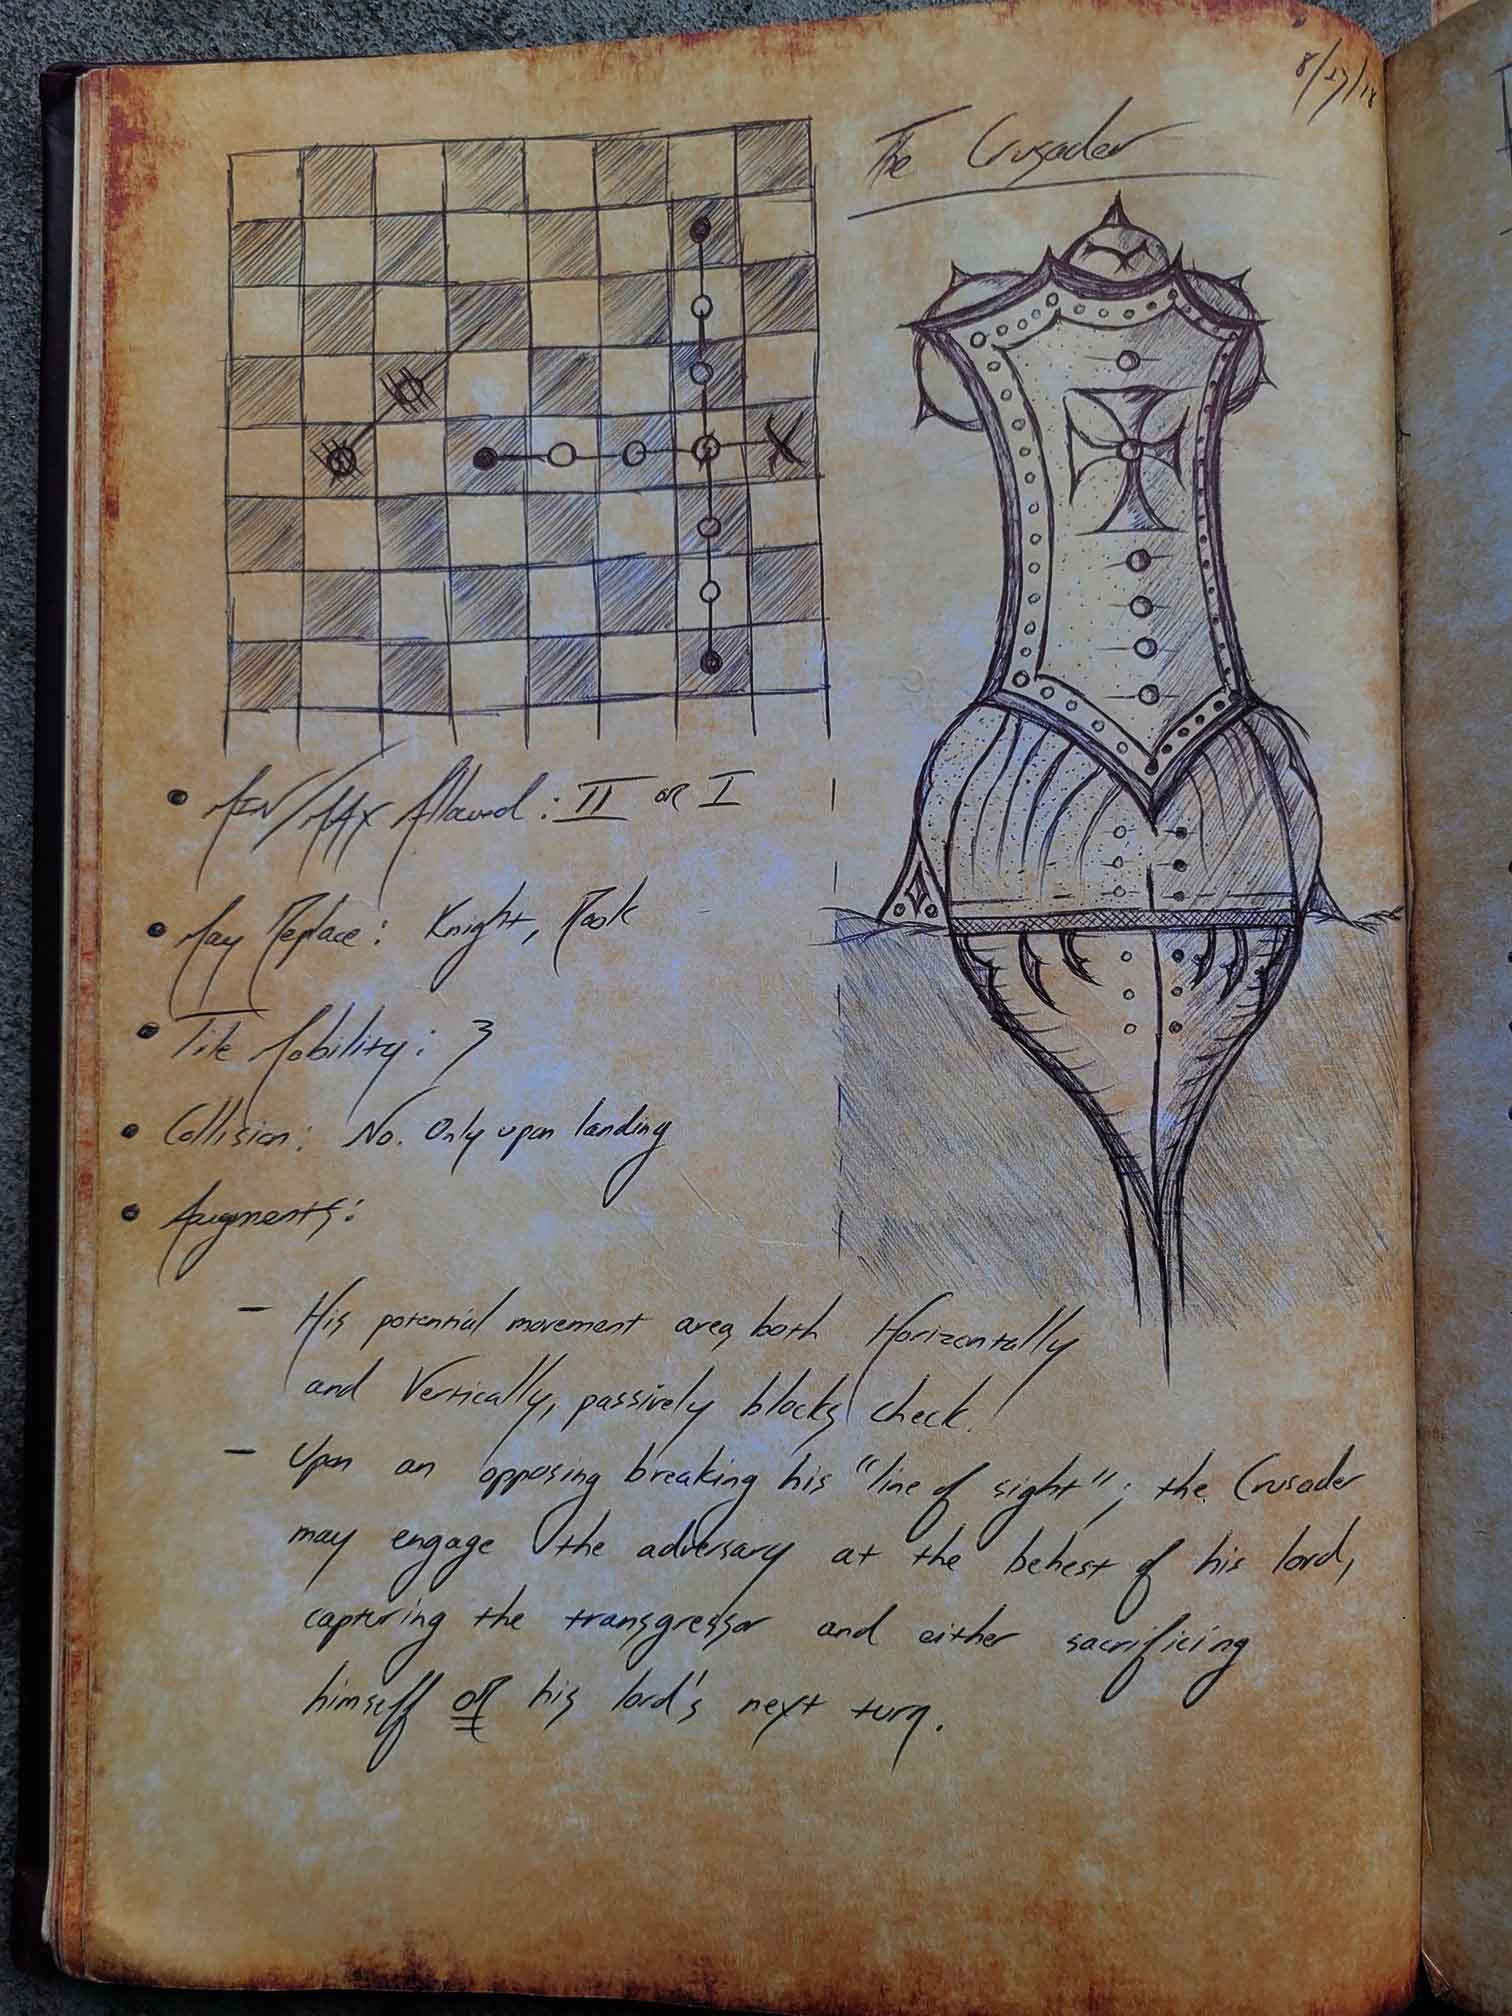 8/27/18
The Crusader
• MIN/MAX Allowed: II or I
• May Replace: Knight, Rook
• Tile Mobility: 3
• Collision: No. Only upon landing
• Augments:
– His potential movement area, both Horizontally
and Vertically, passively blocks check.
– Upon an opposing breaking his "line of sight"; the Crusader
may engage the adversary at the behest of his lord,
capturing the transgressor and either sacrificing
himself OR his lord's next turn.